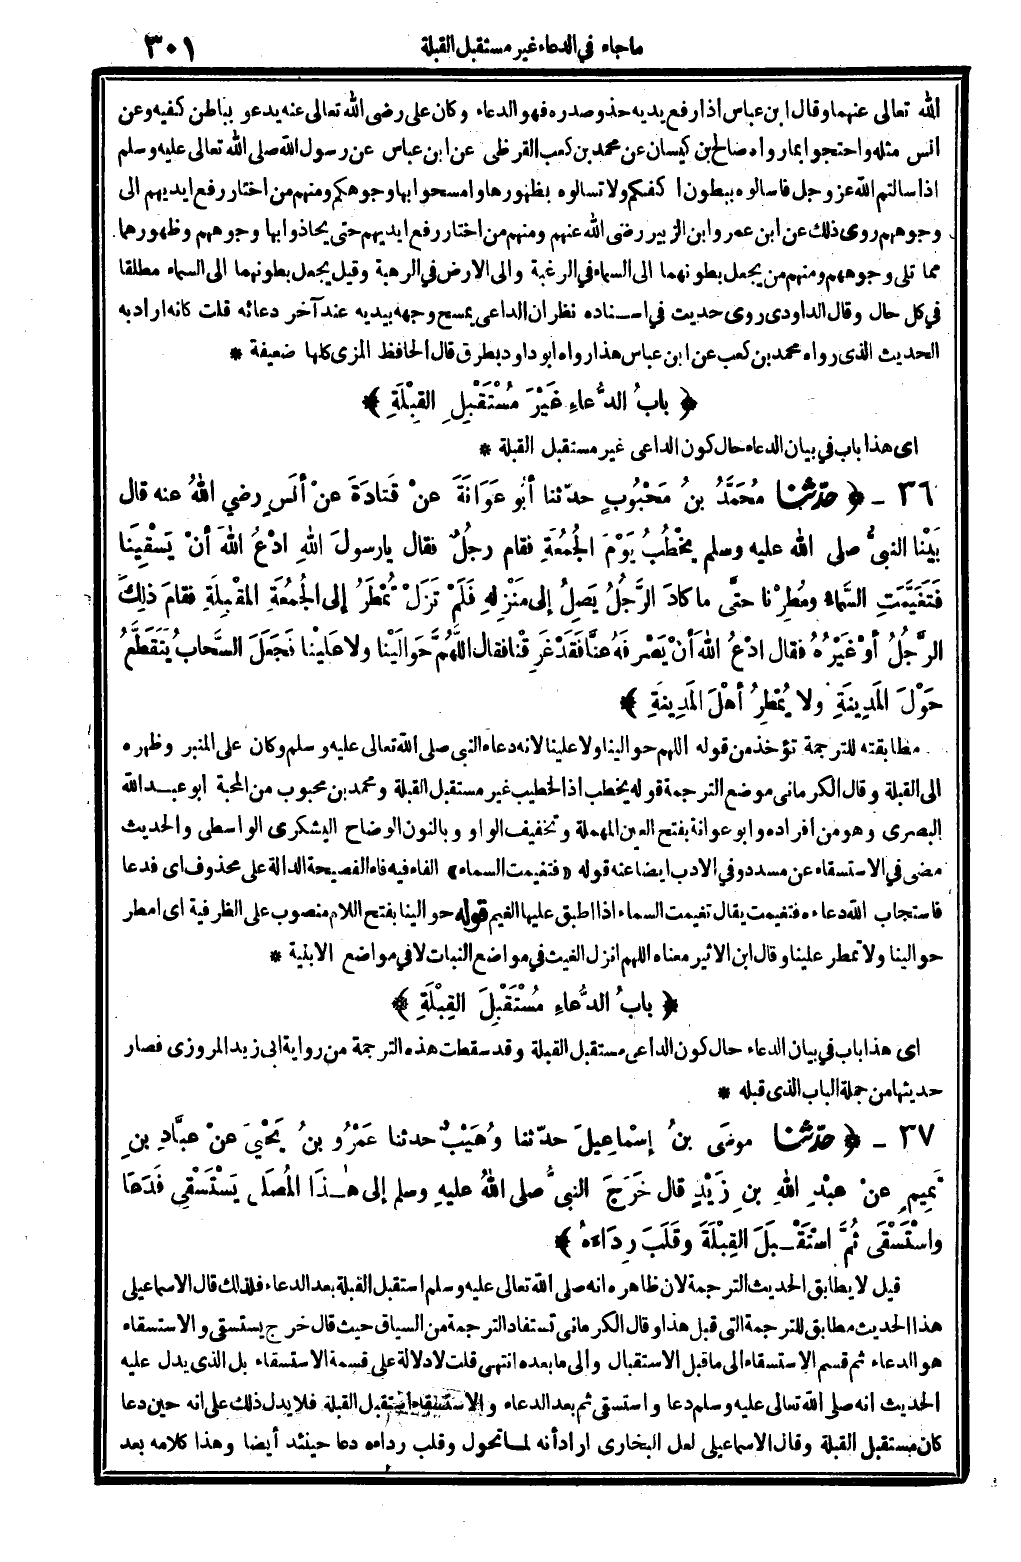 ماجاء في الدعاء غير مستقبل القبلة ٣٠١
الله تعالى عنهما وقال ابن عباس اذا رفع يديه حذو صدره فهو الدعاء وكان علي رضى الله تعالى عنه يدعو بباطن كفيه وعن
انس مثله واحتجوا بما رواه صالح بن كيسان عن محمد بن كعب القرظى عن ابن عباس عن رسول الله صلى الله تعالى عليه وسلم
اذا سالتم الله عز وجل فاسالوه ببطون اكفكم ولا تسالوه بظهورها وامسحوا بها وجوهكم ومنهم من اختار رفع ايديهم الى
وجوههم روى ذلك عن ابن عمر وابن الزبير رضى الله عنهم ومنهم من اختار رفع ايديهم حتى يحاذوا بها وجوههم وظهورهما
مما تلى وجوههم ومنهم من يجعل بطونهما الى السماء في الرغبة والى الارض في الرهبة وقيل يجعل بطونهما الى السماء مطلقا
في كل حال وقال الداودى روى حديث في اسناده نظر ان الداعى يمسح وجهه بيديه عند آخر دعائه قلت كانه اراد به
الحديث الذى رواه محمد بن كعب عن ابن عباس هذا رواه ابو داود بطرق قال الحافظ المزى كلها ضعيفة *
﴿ بابُ الدُّعاءِ غَيْرَ مُسْتَقْبِلِ القِبْلَةِ ﴾
اى هذا باب في بيان الدعاء حال كون الداعى غير مستقبل القبلة *
٣٦ - ﴿ حدّثنا مُحَمَّدُ بنُ مَحْبُوبٍ حدّثنا أبُو عَوَانَةَ عنْ قَتادَةَ عنْ أنَسٍ رضي اللهُ عنه قال
بَيْنا النبيُّ صلى الله عليه وسلم يَخْطُبُ يَوْمَ الجُمُعَةِ فقام رجُلٌ فقال يارسولَ اللهِ ادْعُ اللهَ أنْ يَسْقِيَنا
فَتَغَيَّمَتِ السَّماءُ ومُطِرْنا حتَّى ما كادَ الرَّجُلُ يَصِلُ إلى مَنْزِلِهِ فَلَمْ تَزَلْ تُمْطَرُ إلى الجُمُعَةِ المُقْبِلَةِ فقامَ ذلِكَ
الرَّجُلُ أوْ غَيْرُهُ فقال ادْعُ اللهَ أنْ يَصْرِفَهُ عنَّا فَقَدْ غَرِقْنا فقال اللَّهُمَّ حَوالَيْنا ولا علَيْنا فَجَعَلَ السَّحابُ يَتَقَطَّعُ
حَوْلَ المَدِينَةِ ولا يُمْطِرُ أهْلَ المَدِينَةِ ﴾
مطابقته للترجمة تؤخذ من قوله اللهم حوالينا ولا علينا لانه دعاء النبى صلى الله تعالى عليه وسلم وكان على المنبر وظهره
الى القبلة وقال الكرمانى موضع الترجمة قوله يخطب اذ الخطيب غير مستقبل القبلة ومحمد بن محبوب من المحبة ابو عبد الله
البصرى وهو من افراده وابو عوانة بفتح العين المهملة وتخفيف الواو وبالنون الوضاح اليشكرى الواسطى والحديث
مضى في الاستسقاء عن مسدد وفي الادب ايضا عنه قوله «فتغيمت السماء» الفاء فيه فاء الفصيحة الدالة على محذوف اى فدعا
فاستجاب الله دعاءه فتغيمت يقال تغيمت السماء اذا اطبق عليها الغيم قوله حوالينا بفتح اللام منصوب على الظرفية اى امطر
حوالينا ولا تمطر علينا وقال ابن الاثير معناه اللهم انزل الغيث في مواضع النبات لا في مواضع الابنية *
﴿ بابُ الدُّعاءِ مُسْتَقْبِلَ القِبْلَةِ ﴾
اى هذا باب في بيان الدعاء حال كون الداعى مستقبل القبلة وقد سقطت هذه الترجمة من رواية ابى زيد المروزى فصار
حديثها من جملة الباب الذى قبله *
٣٧ - ﴿ حدّثنا موسَى بنُ إسْماعِيلَ حدّثنا وُهَيْبٌ حدثنا عَمْرُو بنُ يَحْيىَ عنْ عبَّادِ بنِ
تَمِيمٍ عنْ عبْدِ اللهِ بنِ زَيْدٍ قال خَرَجَ النبيُّ صلى اللهُ عليهِ وسلم إلى هٰذَا المُصَلَّى يَسْتَسْقِي فَدَعَا
واسْتَسْقَى ثُمَّ اسْتَقْبَلَ القِبْلَةَ وقَلَبَ رِدَاءَهُ ﴾
قيل لا يطابق الحديث الترجمة لان ظاهره انه صلى الله تعالى عليه وسلم استقبل القبلة بعد الدعاء فلذلك قال الاسماعيلى
هذا الحديث مطابق للترجمة التى قبل هذا وقال الكرمانى تستفاد الترجمة من السياق حيث قال خرج يستسقى والاستسقاء
هو الدعاء ثم قسم الاستسقاء الى ما قبل الاستقبال والى ما بعده انتهى قلت لا دلالة على قسمة الاستسقاء بل الذى يدل عليه
الحديث انه صلى الله تعالى عليه وسلم دعا واستسقى ثم بعد الدعاء والاستسقاء استقبل القبلة فلا يدل ذلك على انه حين دعا
كان مستقبل القبلة وقال الاسماعيلى لعل البخارى اراد أنه لما تحول وقلب رداءه دعا حينئذ أيضا وهذا كلامه بعد